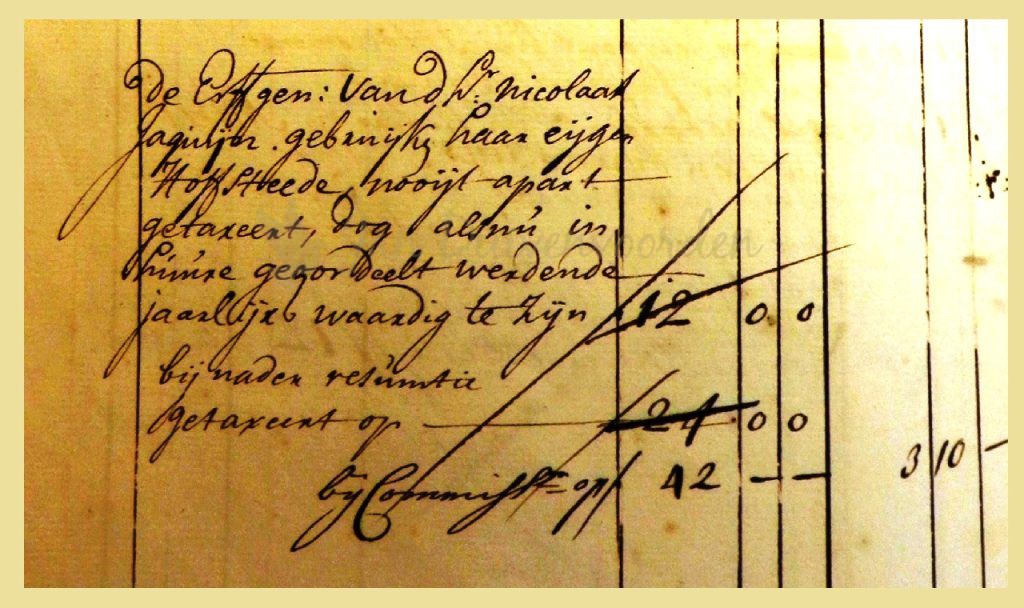 de Erffgen: van d Hr. Nicolaas
Jaquijn. gebruijke haar eijgen
Hoffsteede, nooijt apart
getaxeert, dog alsnu in
huure geoordeelt werdende
jaarlijx waardig te zijn 12 0 0
bij nader resumtie
getaxeert op 24 0 0
bij Commiss= op 42 — — 3 10 —